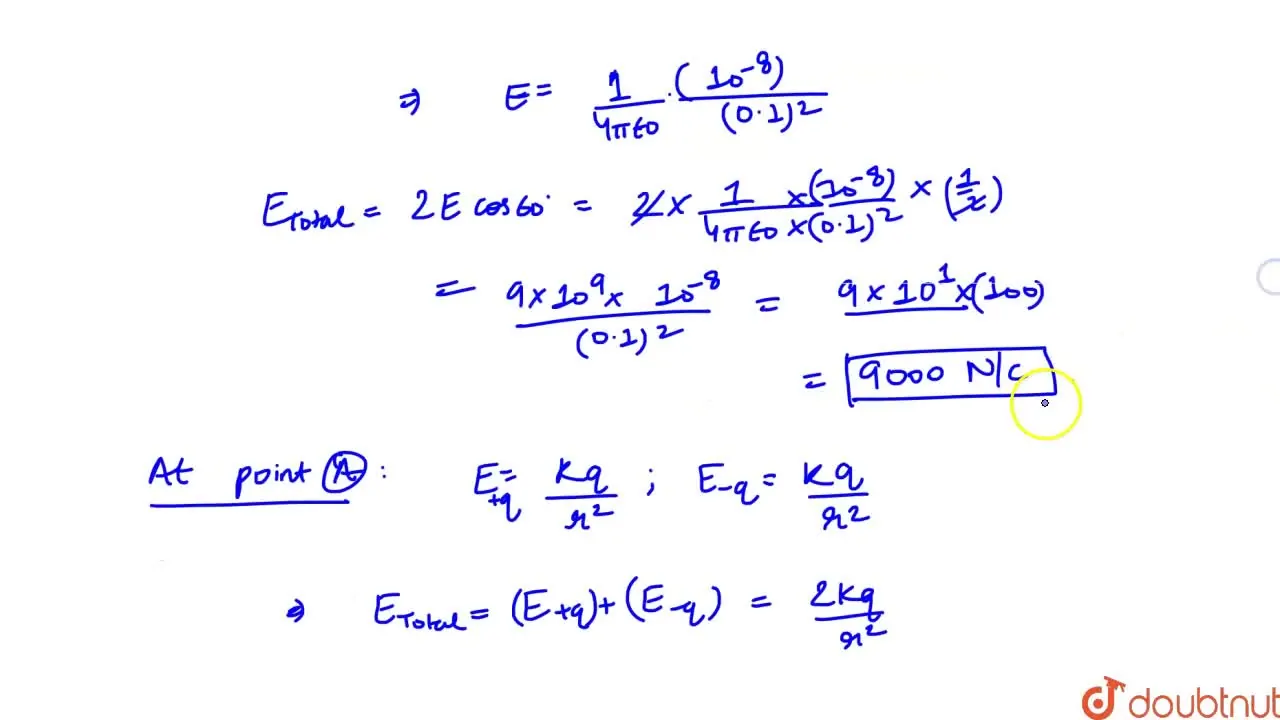 ⇒ E = 1/4πϵ0 · (10⁻⁸)/(0.1)²
E Total = 2E cos60° = 2 × 1/4πϵ0 × (10⁻⁸)/×(0.1)² × (1/2)
= 9×10⁹× 10⁻⁸/(0.1)² = 9×10¹×(100)
= 9000 N/C
At point A : E+q = Kq/r² ; E-q = Kq/r²
⇒ E Total = (E+q)+(E-q) = 2Kq/r²
doubtnut